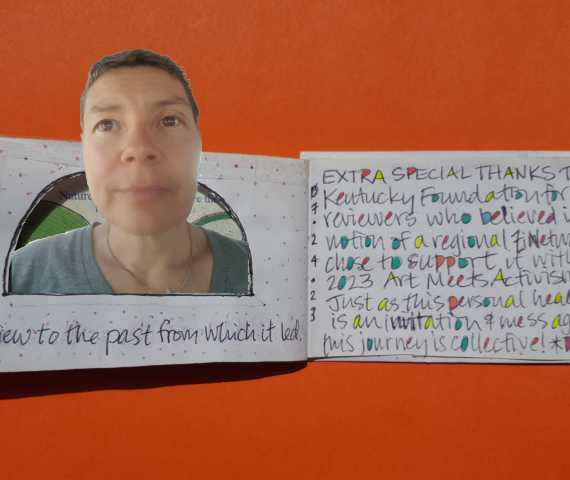 Nature
iew to the past from which it led.
EXTRA SPECIAL THANKS T
Kentucky Foundation for
reviewers who believed i
notion of a regional
chose to support it with
2023 Art Meets Activism
Just as this personal heal
is an invitation & messag
this journey is collective! *
07.24.23